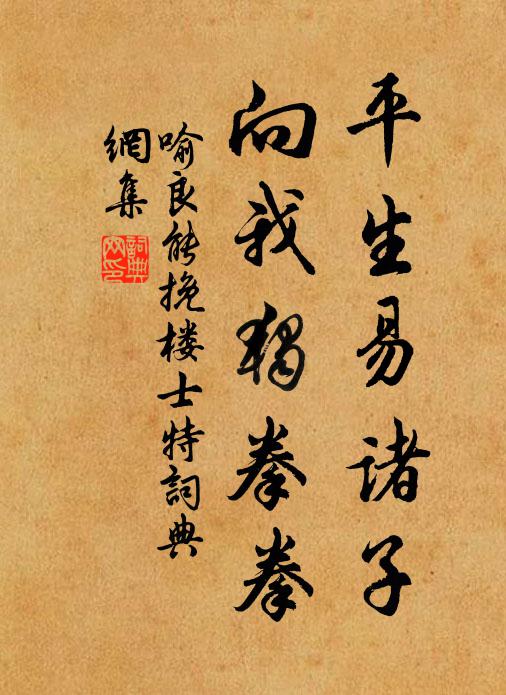 平生易诸子
向我独拳拳
喻良能挽楼士特詞典
網集
詞典
网印